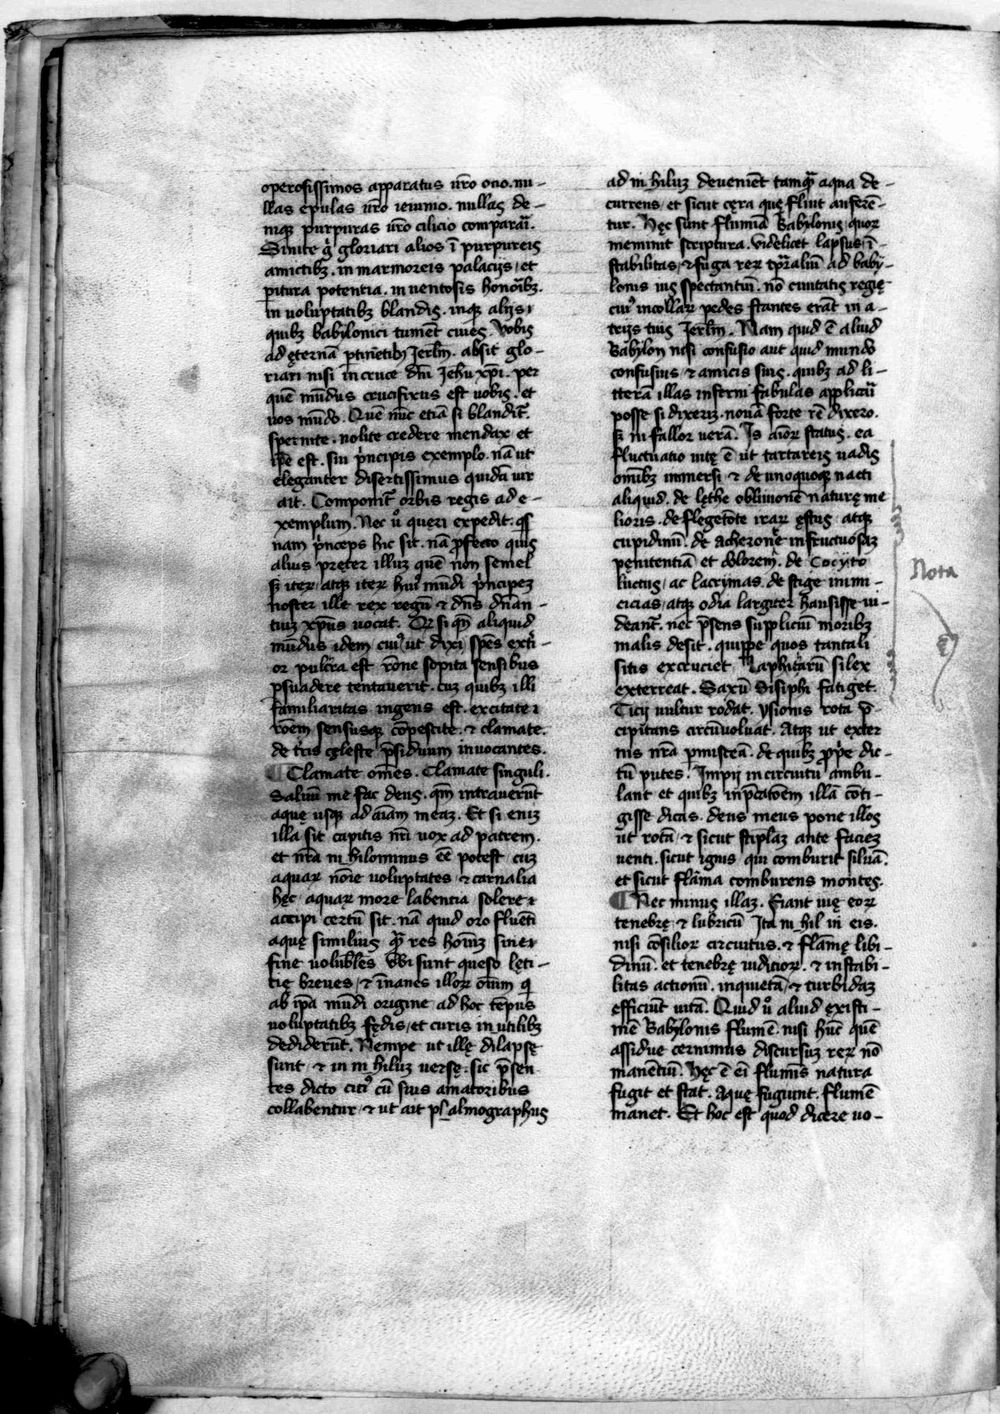 operosissimos apparatus ur̄o ocio. nu-
llas epulas ur̄o ieiunio. nullas de-
niq̨ purpuras ur̄o cilicio comparār̄.
Sinite g̊ gloriari alios ī purpureis
amictibꝫ. in marmoreis palacijs, et
pitura potentia. in ventosis honoribꝫ.
in uoluptatibꝫ blandis. inq̨ alijs,
quibꝫ babylonici tument ciues. Vobis
ad ęternā ptinētibꝫ Jerlm̄. absit glo-
riari nisi in cruce dn̄i Jehu xp̄i. per
quē mūdus crucifixus est uobis. et
uos mūdo. Quē nūc etiā si blandit᷑.
spernite. nolite credere mendax et
ip̄e est. sui p̀ncipis exemplo. nā ut
eleganter disertissimus quidā uir
ait. Componit᷑ orbis regis ad e-
xemplum. Nec u̇ queri expedit. qs
nam p̀nceps hic sit. nā ꝓfecto quis
alius pręter illuꝫ quē non semel
sꝫ iter, atq̨ iter huiꝰ mūdi p̀ncipeꝫ
noster ille rex regū ⁊ dn̄s dn̄an-
tiuꝫ xp̄us uocat. Qr si qn̄ aliquid
mūdus idem cuiꝰ, ut dixi, spēs exti-
or pulcra est rōne sopita sensibus
ꝑsuadere tentauerit. cuꝫ quibꝫ illi
familiaritas ingens est. excitate
rōem sensusq̨ cōpescite. ⁊ clamate.
de tr̄is cęleste p̄sidium inuocantes.
¶ Clamate om̄es. Clamate singuli.
Saluū me fac deus. qm̄ intrauerūt
aquę usq̨ ad aīam meaꝫ. Et si eniꝫ
illa sit capitis nr̄i uox ad patrem.
et nr̄a ni hilominus eē potest, cuꝫ
aquaꝝ nōie uoluptates ⁊ carnalia
hęc, aquaꝝ more labentia, solere
accipi certū sit. nā quid oro fluenti
aquę similius q̄ res homīꝫ sine
fine uolubiles Vbi sunt queso lęti-
tię breues, ⁊ īnanes illoꝝ om̄ium q̇
ab ip̄a mūdi origine ad hoc tēpus
uoluptatibꝫ fędis, et curis inutilibꝫ
dediderūt. Nempe ut illę dilapsę
sunt, ⁊ in ni hiluꝫ uersę. sic p̄sen-
tes dicto citiꝰ cū suis amatoribus
collabentur, ⁊ ut ait psalmographus
ad ni hiluꝫ deuenient tamq̄ aqua de-
currens, et sicut cęra quę fluit auferē-
tur. Hęc sunt flumīa Babylonis, quoꝝ
meminit scriptura. Videlicet lapsus, ī-
stabilitas, ⁊ fuga reꝝ tp̄ꝛaliū ad baby-
lonis ius spectantiū. nō ciuitatis regię
cuiꝰ incollaꝝ pedes stantes erāt in a-
trijs tuis Jerlm̄. Nam quid ē aliud
Babylon nisi confusio aut quid mundo
confusius ⁊ amicis suis. quibꝫ ad li-
tterā illas inferni fabulas applicari
posse si dixeriꝫ. nouā forte rē dixero.
sꝫ ni fallor uerā. Is aīoꝝ status. ea
fluctuatio uitę ē ut tartareis uadis
omībꝫ immersi ⁊ de unoquoq̨ nacti
aliquid. de lęthe obliuionē naturę me
lioris. de flegetōte iraꝝ ęstus, atq̨
cupidinū. de acheronē infructuosaꝫ
pęnitentiā et dolorem̄. de Cocyto
luctus, ac lacrymas. de stige inimi-
cicias, atq̨ odia largiter hausisse ui-
deant᷑. nec p̄sens suppliciū moribꝫ
malis desit. quippe quos tantali
sitis excruciet Laphitarū silex
exterreat. Saxū Sisiphi fatiget.
Ticij uultur rodat. ysionis rota p̄-
cipitans circūuoluat. Atq̨ ut exter
nis nr̄a pmisceā. de quibꝫ ꝓp̄e dic-
tū putes. Impij in circuitu ambu-
lant et quibꝫ inp̄catōem illā cōti-
gisse dicas. deus meus pone illos
ut rotā ⁊ sicut stiplaꝫ ante facieꝫ
uenti. sicut ignis qui comburit siluā.
et sicut flāma comburens montes.
¶ Nec minus illaꝫ. Fiant uię eoꝝ
tenebrę ⁊ lubricū Ita ni hil in eis.
nisi cōsilioꝝ circuitus. ⁊ flāmę libi-
dinū. et tenebrę iudicioꝝ. ⁊ instabi-
litas actionū. inquietā, ⁊ turbidaꝫ
efficiūt uitā. Quid u̇ aliud existi-
mē Babylonis flumē. nisi hūc quē
assidue cernimus discursuꝫ reꝝ nō
manētiū. Hęc ē ei flumīs natura
fugit et stat. Aquę fugiunt. flumē
manet. Et hoc est quod dicere uo-
Nota